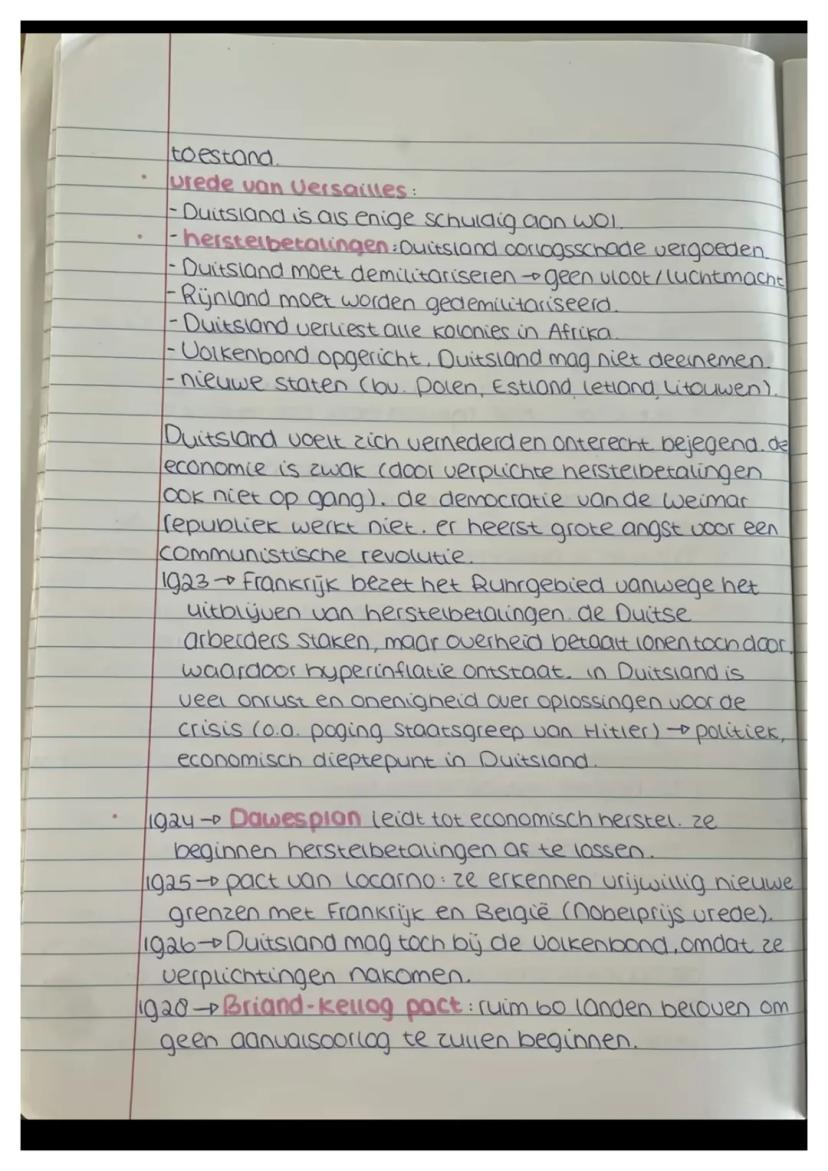 toestand.
vrede van Versailles:
- Duitsland is als enige schuldig aan WOI.
- herstelbetalingen: Duitsland oorlogsschade vergoeden.
- Duitsland moet demilitariseren → geen vloot/luchtmacht
- Rijnland moet worden gedemilitariseerd.
- Duitsland verliest alle kolonies in Afrika.
- Volkenbond opgericht, Duitsland mag niet deelnemen.
- nieuwe staten (bv. Polen, Estland, Letland, Litouwen).
Duitsland voelt zich vernederd en onterecht bejegend. de
economie is zwak (door verplichte herstelbetalingen
ook niet op gang). de democratie van de Weimar
republiek werkt niet. er heerst grote angst voor een
communistische revolutie.
1923 → Frankrijk bezet het Ruhrgebied vanwege het
uitblijven van herstelbetalingen. de Duitse
arbeiders staken, maar overheid betaalt lonen toch door,
waardoor hyperinflatie ontstaat. in Duitsland is
veel onrust en onenigheid over oplossingen voor de
crisis (o.a. poging staatsgreep van Hitler) → politiek,
economisch dieptepunt in Duitsland.
1924 → Dawesplan leidt tot economisch herstel. ze
beginnen herstelbetalingen af te lossen.
1925 → pact van Locarno: ze erkennen vrijwillig nieuwe
grenzen met Frankrijk en België (nobelprijs vrede).
1926 → Duitsland mag toch bij de volkenbond, omdat ze
verplichtingen nakomen.
1928 → Briand-Kellog pact: ruim 60 landen beloven om
geen aanvalsoorlog te zullen beginnen.